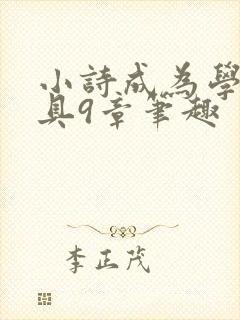 小詩成為學
具9章筆趣
李正茂